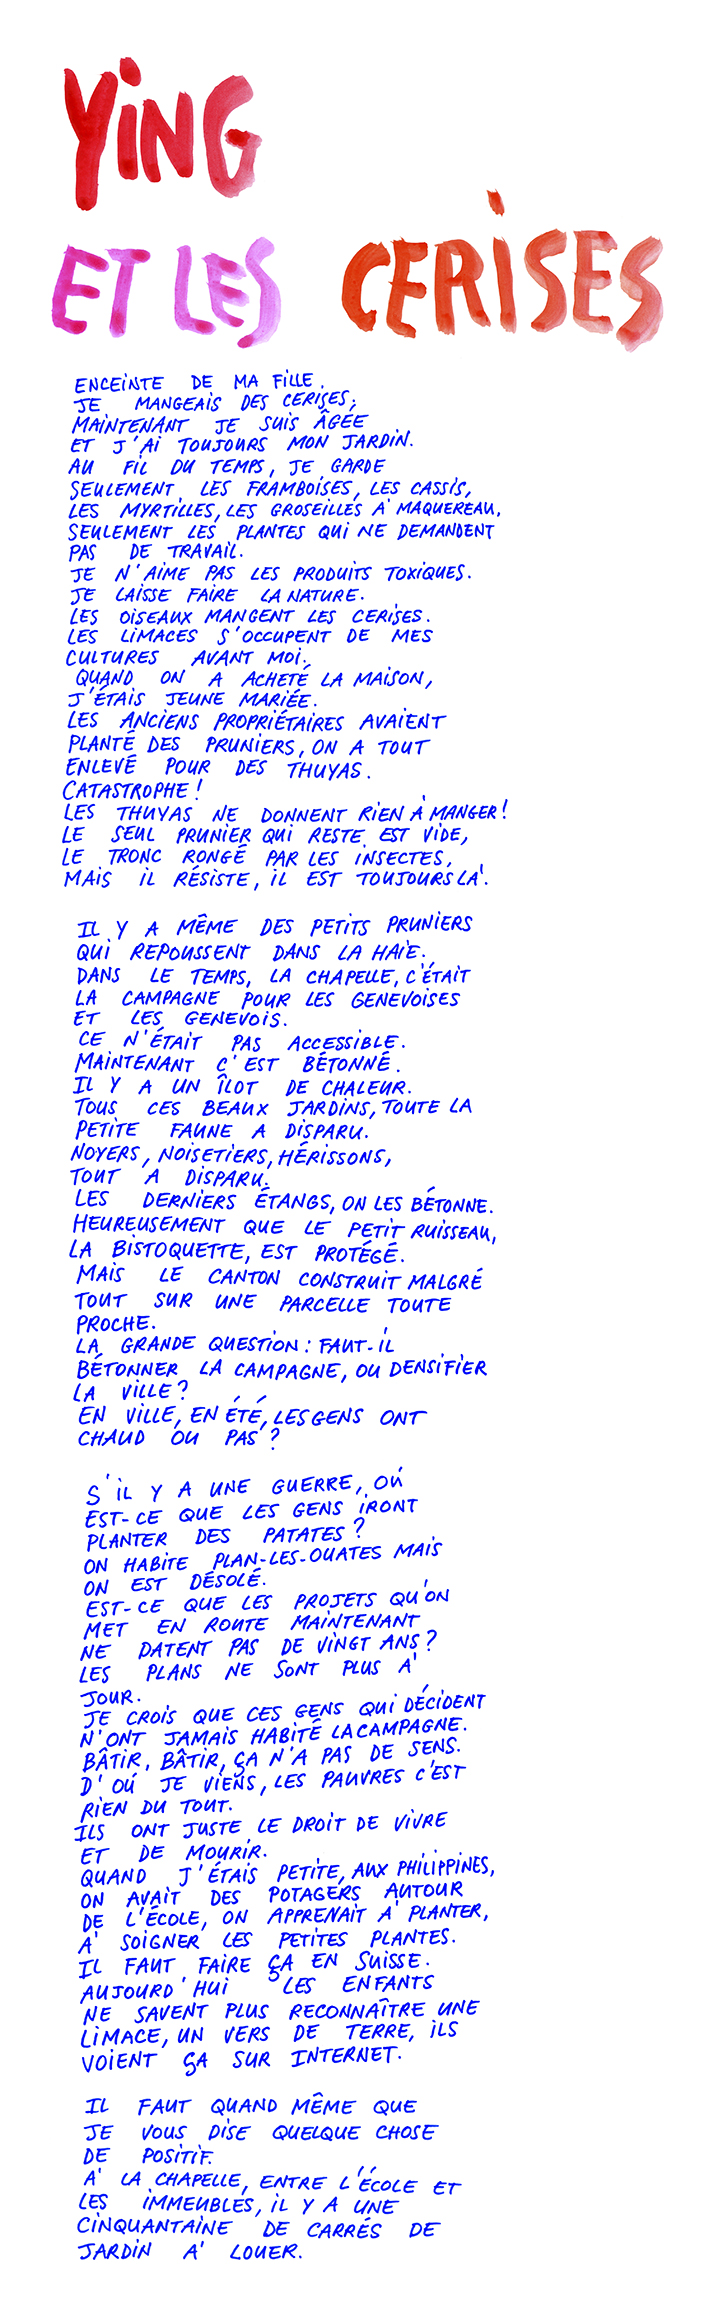 YiNG
ET LES CERISES
ENCEINTE DE MA FILLE.
JE MANGEAIS DES CERISES;
MAINTENANT JE SUIS ÂGÉE
ET J'AI TOUJOURS MON JARDIN.
AU FIL DU TEMPS, JE GARDE
SEULEMENT LES FRAMBOISES, LES CASSIS,
LES MYRTILLES, LES GROSEILLES À MAQUEREAU,
SEULEMENT LES PLANTES QUI NE DEMANDENT
PAS DE TRAVAIL.
JE N'AIME PAS LES PRODUITS TOXIQUES.
JE LAISSE FAIRE LA NATURE.
LES OISEAUX MANGENT LES CERISES.
LES LIMACES S'OCCUPENT DE MES
CULTURES AVANT MOI.
QUAND ON A ACHETÉ LA MAISON,
J'ÉTAIS JEUNE MARIÉE.
LES ANCIENS PROPRIÉTAIRES AVAIENT
PLANTÉ DES PRUNIERS, ON A TOUT
ENLEVÉ POUR DES THUYAS.
CATASTROPHE!
LES THUYAS NE DONNENT RIEN À MANGER!
LE SEUL PRUNIER QUI RESTE EST VIDE,
LE TRONC RONGÉ PAR LES INSECTES,
MAIS IL RÉSISTE, IL EST TOUJOURS LÀ.
IL Y A MÊME DES PETITS PRUNIERS
QUI REPOUSSENT DANS LA HAIE.
DANS LE TEMPS, LA CHAPELLE, C'ÉTAIT
LA CAMPAGNE POUR LES GENEVOISES
ET LES GENEVOIS.
CE N'ÉTAIT PAS ACCESSIBLE.
MAINTENANT C'EST BÉTONNÉ.
IL Y A UN ÎLOT DE CHALEUR.
TOUS CES BEAUX JARDINS, TOUTE LA
PETITE FAUNE A DISPARU.
NOYERS, NOISETIERS, HÉRISSONS,
TOUT A DISPARU.
LES DERNIERS ÉTANGS, ON LES BÉTONNE.
HEUREUSEMENT QUE LE PETIT RUISSEAU,
LA BISTOQUETTE, EST PROTÉGÉ.
MAIS LE CANTON CONSTRUIT MALGRÉ
TOUT SUR UNE PARCELLE TOUTE
PROCHE.
LA GRANDE QUESTION: FAUT-IL
BÉTONNER LA CAMPAGNE, OU DENSIFIER
LA VILLE?
EN VILLE, EN ÉTÉ, LES GENS ONT
CHAUD OU PAS?
S'IL Y A UNE GUERRE, OÙ
EST-CE QUE LES GENS IRONT
PLANTER DES PATATES?
ON HABITE PLAN-LES-OUATES MAIS
ON EST DÉSOLÉ.
EST-CE QUE LES PROJETS QU'ON
MET EN ROUTE MAINTENANT
NE DATENT PAS DE VINGT ANS?
LES PLANS NE SONT PLUS À
JOUR.
JE CROIS QUE CES GENS QUI DÉCIDENT
N'ONT JAMAIS HABITÉ LA CAMPAGNE.
BÂTIR, BÂTIR, ÇA N'A PAS DE SENS.
D'OÙ JE VIENS, LES PAUVRES C'EST
RIEN DU TOUT.
ILS ONT JUSTE LE DROIT DE VIVRE
ET DE MOURIR.
QUAND J'ÉTAIS PETITE, AUX PHILIPPINES,
ON AVAIT DES POTAGERS AUTOUR
DE L'ÉCOLE, ON APPRENAIT À PLANTER,
À SOIGNER LES PETITES PLANTES.
IL FAUT FAIRE ÇA EN SUISSE.
AUJOURD'HUI LES ENFANTS
NE SAVENT PLUS RECONNAÎTRE UNE
LIMACE, UN VERS DE TERRE, ILS
VOIENT ÇA SUR INTERNET.
IL FAUT QUAND MÊME QUE
JE VOUS DISE QUELQUE CHOSE
DE POSITIF.
À LA CHAPELLE, ENTRE L'ÉCOLE ET
LES IMMEUBLES, IL Y A UNE
CINQUANTAINE DE CARRÉS DE
JARDIN À LOUER.